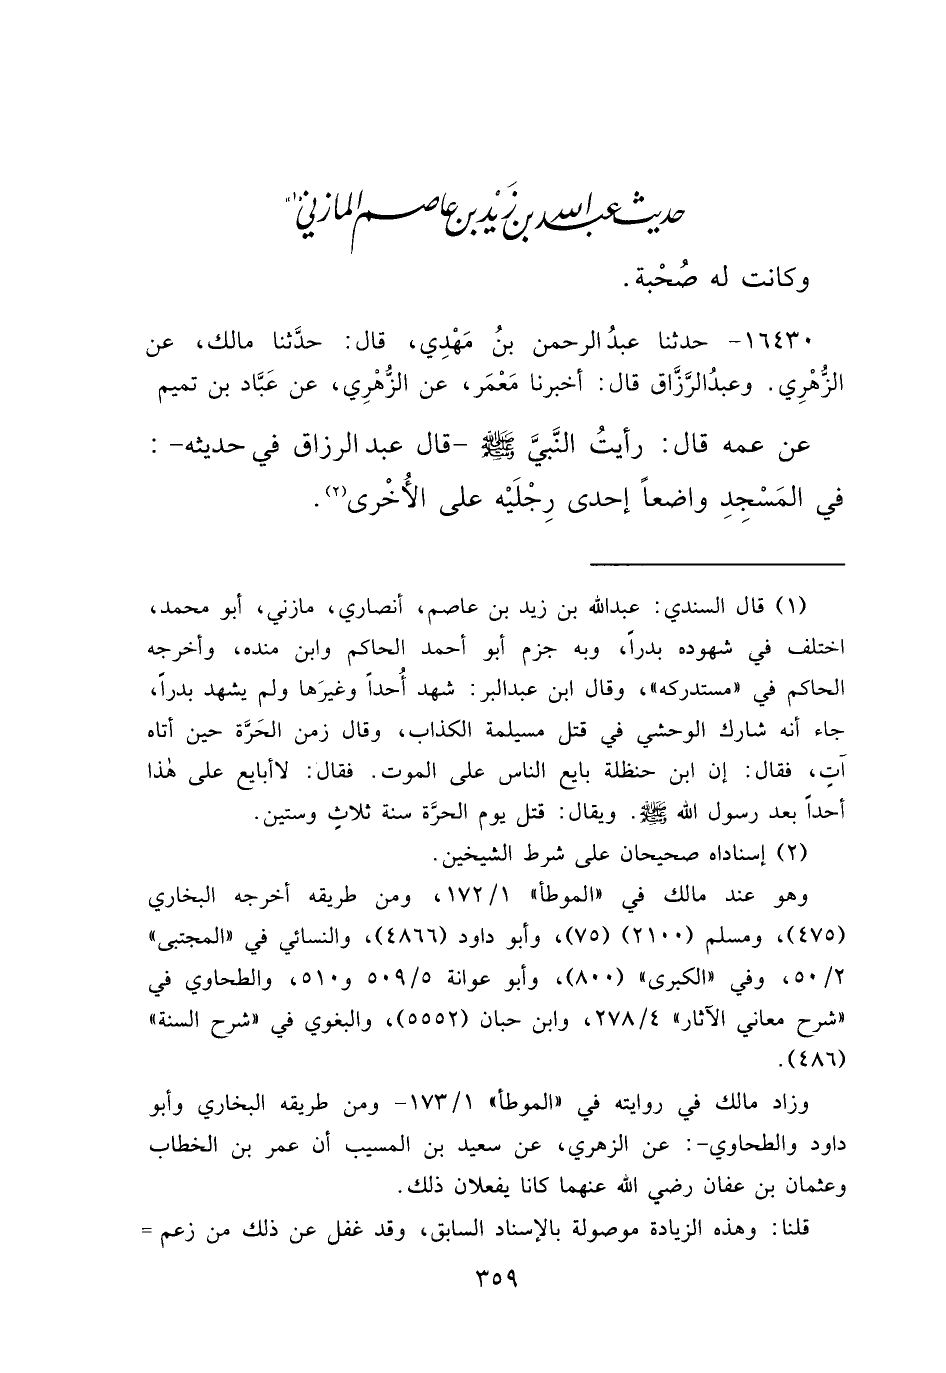 حديث عبد الله بن زَيْد بن عاصم المازني(١)
وكانت له صُحْبة.
١٦٤٣٠- حدثنا عبدُ الرحمن بنُ مَهْدِي، قال: حدَّثنا مالك، عن
الزُّهْرِي. وعبدُالرَّزَّاق قال: أخبرنا مَعْمَر، عن الزُّهْرِي، عن عَبَّاد بن تميم
عن عمه قال: رأيتُ النَّبيَّ ﷺ -قال عبد الرزاق في حديثه- :
في المَسْجِدِ واضعاً إحدى رِجْلَيْه على الأُخْرى(٢).
(١) قال السندي: عبدالله بن زيد بن عاصم، أنصاري، مازني، أبو محمد،
اختلف في شهوده بدراً، وبه جزم أبو أحمد الحاكم وابن منده، وأخرجه
الحاكم في «مستدركه»، وقال ابن عبدالبر: شهد أُحداً وغيرَها ولم يشهد بدراً،
جاء أنه شارك الوحشي في قتل مسيلمة الكذاب، وقال زمن الحَرَّة حين أتاه
آتٍ، فقال: إن ابن حنظلة بايع الناس على الموت. فقال: لاأبايع على هٰذا
أحداً بعد رسول الله ﷺ. ويقال: قتل يوم الحرَّة سنة ثلاثٍ وستين.
(٢) إسناداه صحيحان على شرط الشيخين.
وهو عند مالك في «الموطأ» ١٧٢/١، ومن طريقه أخرجه البخاري
(٤٧٥)، ومسلم (٢١٠٠) (٧٥)، وأبو داود (٤٨٦٦)، والنسائي في «المجتبى»
٥٠/٢، وفي «الكبرى» (٨٠٠)، وأبو عوانة ٥٠٩/٥ و٥١٠، والطحاوي في
«شرح معاني الآثار» ٢٧٨/٤، وابن حبان (٥٥٥٢)، والبغوي في «شرح السنة»
(٤٨٦).
وزاد مالك في روايته في «الموطأ» ١٧٣/١- ومن طريقه البخاري وأبو
داود والطحاوي-: عن الزهري، عن سعيد بن المسيب أن عمر بن الخطاب
وعثمان بن عفان رضي الله عنهما كانا يفعلان ذلك.
قلنا: وهذه الزيادة موصولة بالإسناد السابق، وقد غفل عن ذلك من زعم =
٣٥٩